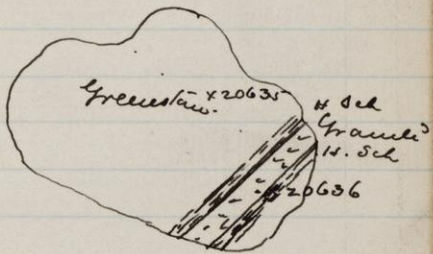 Greenstone. x20635
H Sch
Granite
H. Sch
x20636